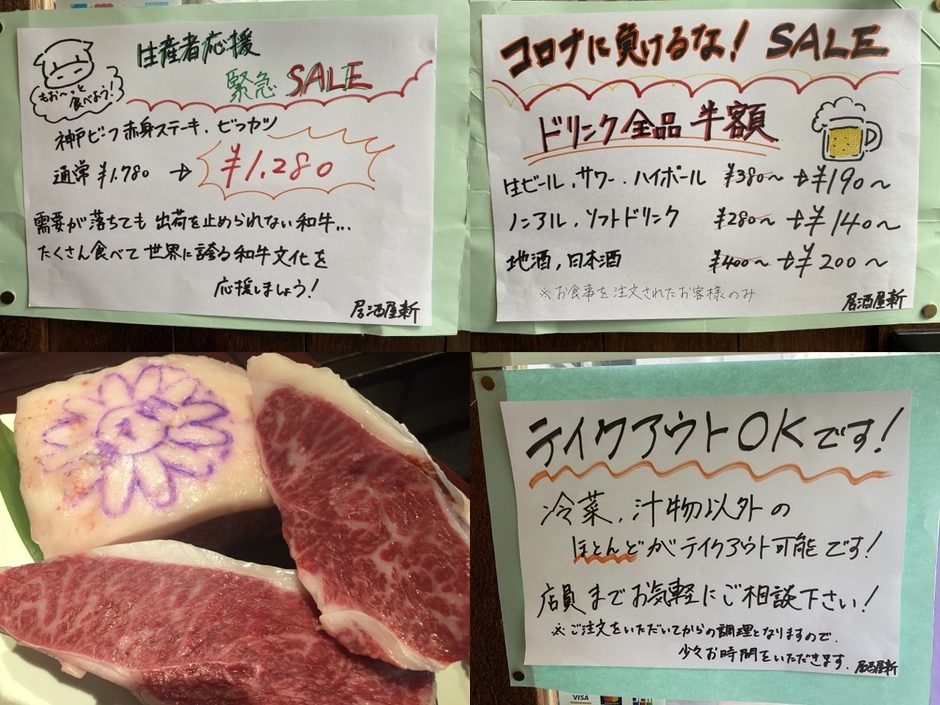 生産者応援
緊急 SALE
もぉ〜っと
食べよう!
神戸ビーフ赤身ステーキ、ビフカツ
通常 ¥1,780 → ¥1,280
需要が落ちても 出荷を止められない和牛...
たくさん食べて 世界に誇る和牛文化を
応援しましょう!
居酒屋新
コロナに負けるな! SALE
ドリンク全品 半額
生ビール、サワー、ハイボール ¥380〜 → ¥190〜
ノンアル、ソフトドリンク ¥280〜 → ¥140〜
地酒、日本酒 ¥400〜 → ¥200〜
※お食事を注文されたお客様のみ
居酒屋新
テイクアウトOKです!
冷菜、汁物以外の
ほとんどがテイクアウト可能です!
店員までお気軽にご相談下さい!
※ご注文をいただいてからの調理となりますので、
少々お時間をいただきます。居酒屋新
VISA